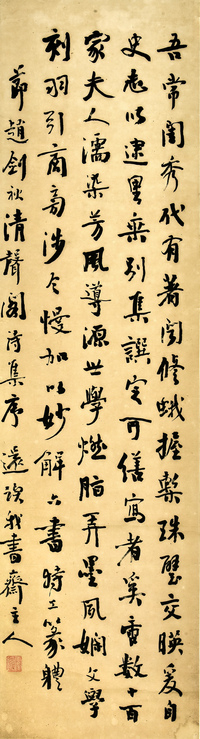 吾常閨秀代有著聞修蛾握槧珠璧交暎爰自
史志以逮里乘別集譔定可繕寫者奚啻數十百
家夫人濡染芳風導源世學燃脂弄墨夙嫻文學
刻羽引商涉令慢加以妙解六書特工篆體
節趙劍秋清聲閣詩集序 還讀我書齋主人